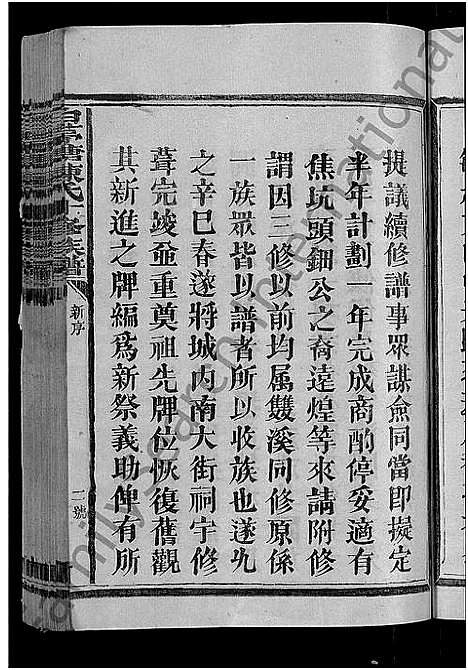 提議續修譜事眾謀僉同當即擬定
半年計劃一年完成商酌停妥適有
焦坑頭鈿公之裔遠煌等來請附修
謂因三修以前均属雙溪同修原係
一族眾皆以譜者所以收族也遂允
之辛巳春遂將城内南大街祠宇修
葺完竣並重奠祖先牌位恢復舊觀
其新進之牌編爲新祭義助俾有所
新序
二號
familysearch international